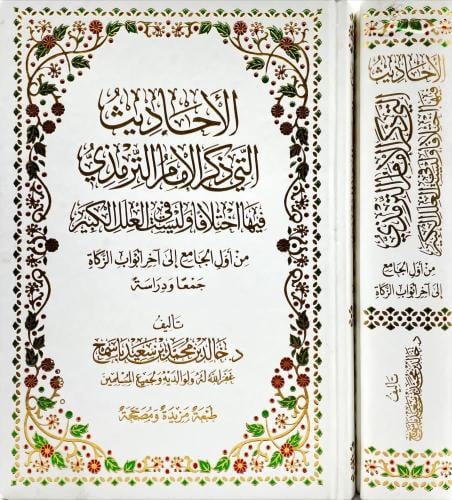 الأحاديث
التي ذكر الإمام الترمذي
فيها اختلافا وليست في العلل الكبير
من أول الجامع إلى آخر أبواب الزكاة
جمعا ودراسة
تأليف
د. خالد بن محمد بن سعيد باسمح
غفر الله له ولوالديه ولجميع المسلمين
طبعة مزيدة ومصححة
الأحاديث
التي ذكر الإمام الترمذي
فيها اختلافا وليست في العلل الكبير
من أول الجامع
إلى آخر أبواب الزكاة
تأليف
د. خالد بن محمد بن سعيد باسمح